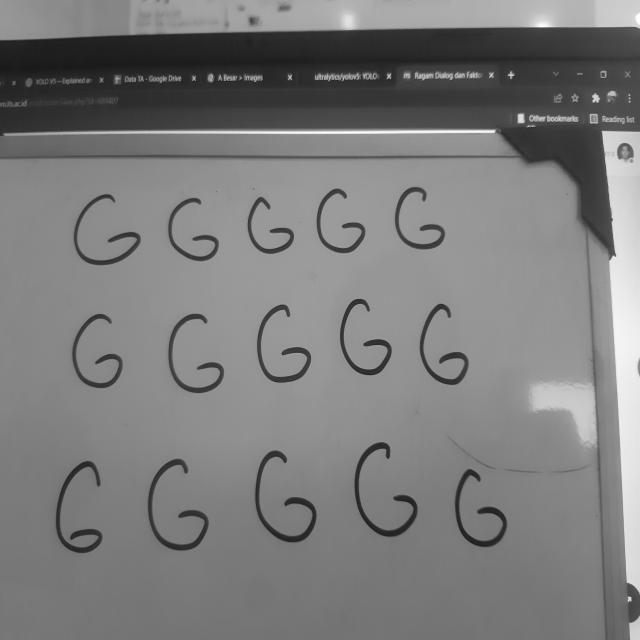 YOLO V5 — Explained an
Data TA - Google Drive
A Besar > Images
ultralytics/yolov5: YOLO
Ragam Dialog dan Fakto
Other bookmarks
Reading list
G G G G G
G G G G G
G G G G G